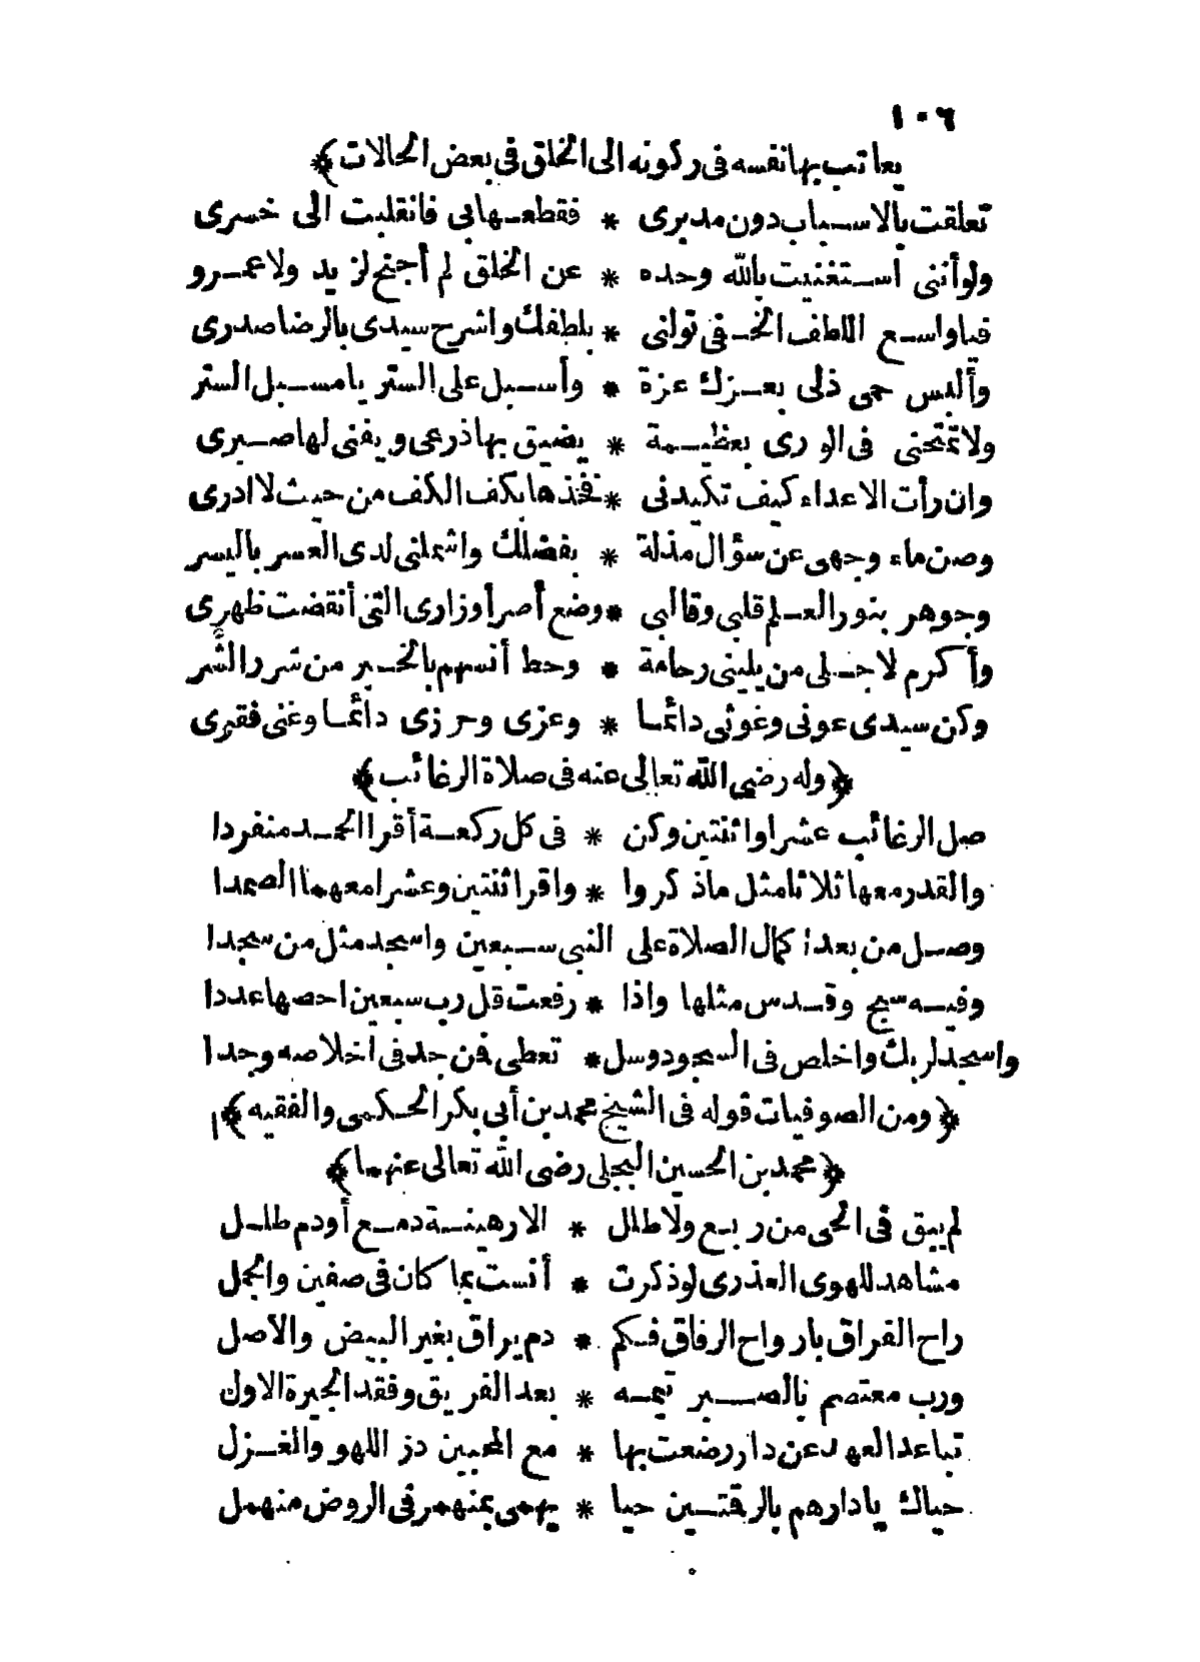 ١٠٦
يعاتب بها نفسه فى ركونه الى الخلق فى بعض الحالات﴾
تعلقت بالاسباب دون مدبرى * فقطعها بى فانقلبت الى خسرى
ولو أننى استغنيت بالله وحده * عن الخلق لم أجنح لزيد ولا عمرو
فيا واسع اللطف الخفى تولنى * بلطفك واشرح سيدى بالرضا صدرى
وألبس حمى ذلى بعزك عزة * وأسبل على الستر يا مسبل الستر
ولا تمتحنى فى الورى بعظيمة * يضيق بها ذرعى ويفنى لها صبرى
وان رأت الاعداء كيف تكيدنى * فخذها بكف الكف من حيث لا ادرى
وصن ماء وجهى عن سؤال مذلة * بفضلك واشملنى لدى العسر باليسر
وجوهر بنور العلم قلبى وقالبى * وضع أصر أوزارى التى أنقضت ظهرى
وأكرم لاجلى من يلينى رحامة * وحط أنسهم بالخير من شرر الشر
وكن سيدى عونى وغوثى دائما * وعزى وحرزى دائما وغنى فقرى
﴿وله رضى الله تعالى عنه فى صلاة الرغائب﴾
صل الرغائب عشرا واثنتين وكن * فى كل ركعة أقرا الحمد منفردا
والقدر معها ثلاثا مثل ماذكروا * واقرا ثنتين وعشرا معهما الصمدا
وصل من بعد اكمال الصلاة على النبى سبعين واسجد مثل من سجدا
وفيه سبح وقدس مثلها واذا * رفعت قل رب سبعين احصها عددا
واسجد لربك واخلص فى السجود وسل * تعطى فمن جد فى اخلاصه وجدا
﴿ومن الصوفيات قوله فى الشيخ محمد بن أبى بكر الحكمى والفقيه﴾
﴿محمد بن الحسين البجلى رضى الله تعالى عنهما﴾
لم يبق فى الحى من ربع ولا طلل * الا رهينة دمع أو دم طلل
مشاهد للهوى العذرى لوذكرت * أنست بما كان فى صفين والجمل
راح الفراق بارواح الرفاق فكم * دم يراق بغير البيض والاصل
ورب معتصم بالصبر تيمه * بعد الفريق وفقد الجيرة الاول
تباعد العهد عن دار رضعت بها * مع المحبين در اللهو والغزل
حياك يا دارهم بالرقتين حيا * يهمى بمنهمر فى الروض منهمل